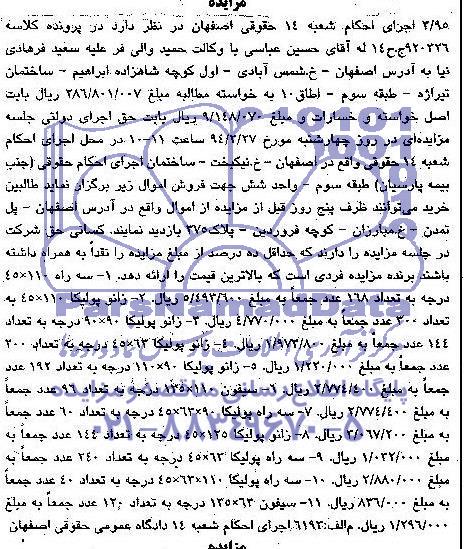 مزایده
۳/۹۵ اجرای احکام شعبه ۱۴ حقوقی اصفهان در نظر دارد در پرونده کلاسه
۹۲۰۳۲۶ج.ح۱۴ له آقای حسین عباسی با وکالت حمید والی فر علیه سعید فرهادی
نیا به آدرس اصفهان - خ.شمس آبادی - اول کوچه شاهزاده ابراهیم - ساختمان
تیراژه - طبقه سوم - اطاق۱۰ به خواسته مطالبه مبلغ ۲۸۶/۸۰۱/۰۰۷ ریال بابت
اصل خواسته و خسارات و مبلغ ۹/۱۴۸/۰۷۰ ریال بابت حق اجرای دولتی جلسه
مزایده‌ای در روز چهارشنبه مورخ ۹۴/۳/۲۷ ساعت ۱۱-۱۰ در محل اجرای احکام
شعبه ۱۴ حقوقی واقع در اصفهان - خ.نیکبخت - ساختمان اجرای احکام حقوقی (جنب
بیمه پارسیان) طبقه سوم - واحد شش جهت فروش اموال زیر برگزار نماید طالبین
خرید می‌توانند ظرف پنج روز قبل از مزایده از اموال واقع در آدرس اصفهان - پل
تمدن - خ.مبارزان - کوچه فروردین - پلاک۳۷۵ بازدید نمایند. کسانی حق شرکت
در جلسه مزایده را دارند که حداقل ده درصد از مبلغ مزایده را نقداً به همراه داشته
باشند برنده مزایده فردی است که بالاترین قیمت را ارائه دهد. ۱- سه راه ۱۱۰×۴۵
درجه به تعداد ۱۶۸ عدد جمعاً به مبلغ ۵/۴۹۳/۶۰۰ ریال. ۲- زانو پولیکا ۱۱۰×۴۵ به
تعداد ۳۰۰ عدد جمعاً به مبلغ ۴/۷۷۰/۰۰۰ ریال. ۳- زانو پولیکا ۹۰×۹۰ درجه به تعداد
۱۴۴ عدد جمعاً به مبلغ ۱/۹۷۳/۸۰۰ ریال. ۴- زانو پولیکا ۶۳×۴۵ درجه به تعداد ۲۰۰
عدد جمعاً به مبلغ ۱/۲۲۰/۰۰۰ ریال. ۵- زانو پولیکا ۹۰×۱۱۰ درجه به تعداد ۱۹۲ عدد
جمعاً به مبلغ ۳/۷۷۴/۴۰۰ ریال. ۶- سیفون ۱۱۰×۱۳۵ درجه به تعداد ۹۶ عدد جمعاً
به مبلغ ۳/۷۷۴/۴۰۰ ریال. ۷- سه راه پولیکا ۹۰×۶۳×۴۵ درجه به تعداد ۶۰ عدد جمعاً
به مبلغ ۲/۰۶۷/۲۰۰ ریال. ۸- زانو پولیکا ۱۲۵×۴۵ درجه به تعداد ۱۴۴ عدد جمعاً به
مبلغ ۱/۰۳۲/۰۰۰ ریال. ۹- سه راه پولیکا ۶۳×۴۵ درجه به تعداد ۲۴۰ عدد جمعاً به
مبلغ ۲/۸۸۰/۰۰۰ ریال. ۱۰- سه راه پولیکا ۱۱۰×۶۳×۴۵ درجه به تعداد ۴۰ عدد جمعاً
به مبلغ ۸۳۶/۰۰۰ ریال. ۱۱- سیفون ۶۳×۱۳۵ درجه به تعداد ۱۲۰ عدد جمعاً به مبلغ
۱/۲۹۶/۰۰۰ ریال. م‌الف:۶۱۹۳ اجرای احکام شعبه ۱۴ دادگاه عمومی حقوقی اصفهان
ParsNamadData
۰۲۱-۸۸۳۴۹۶۷۰-۵